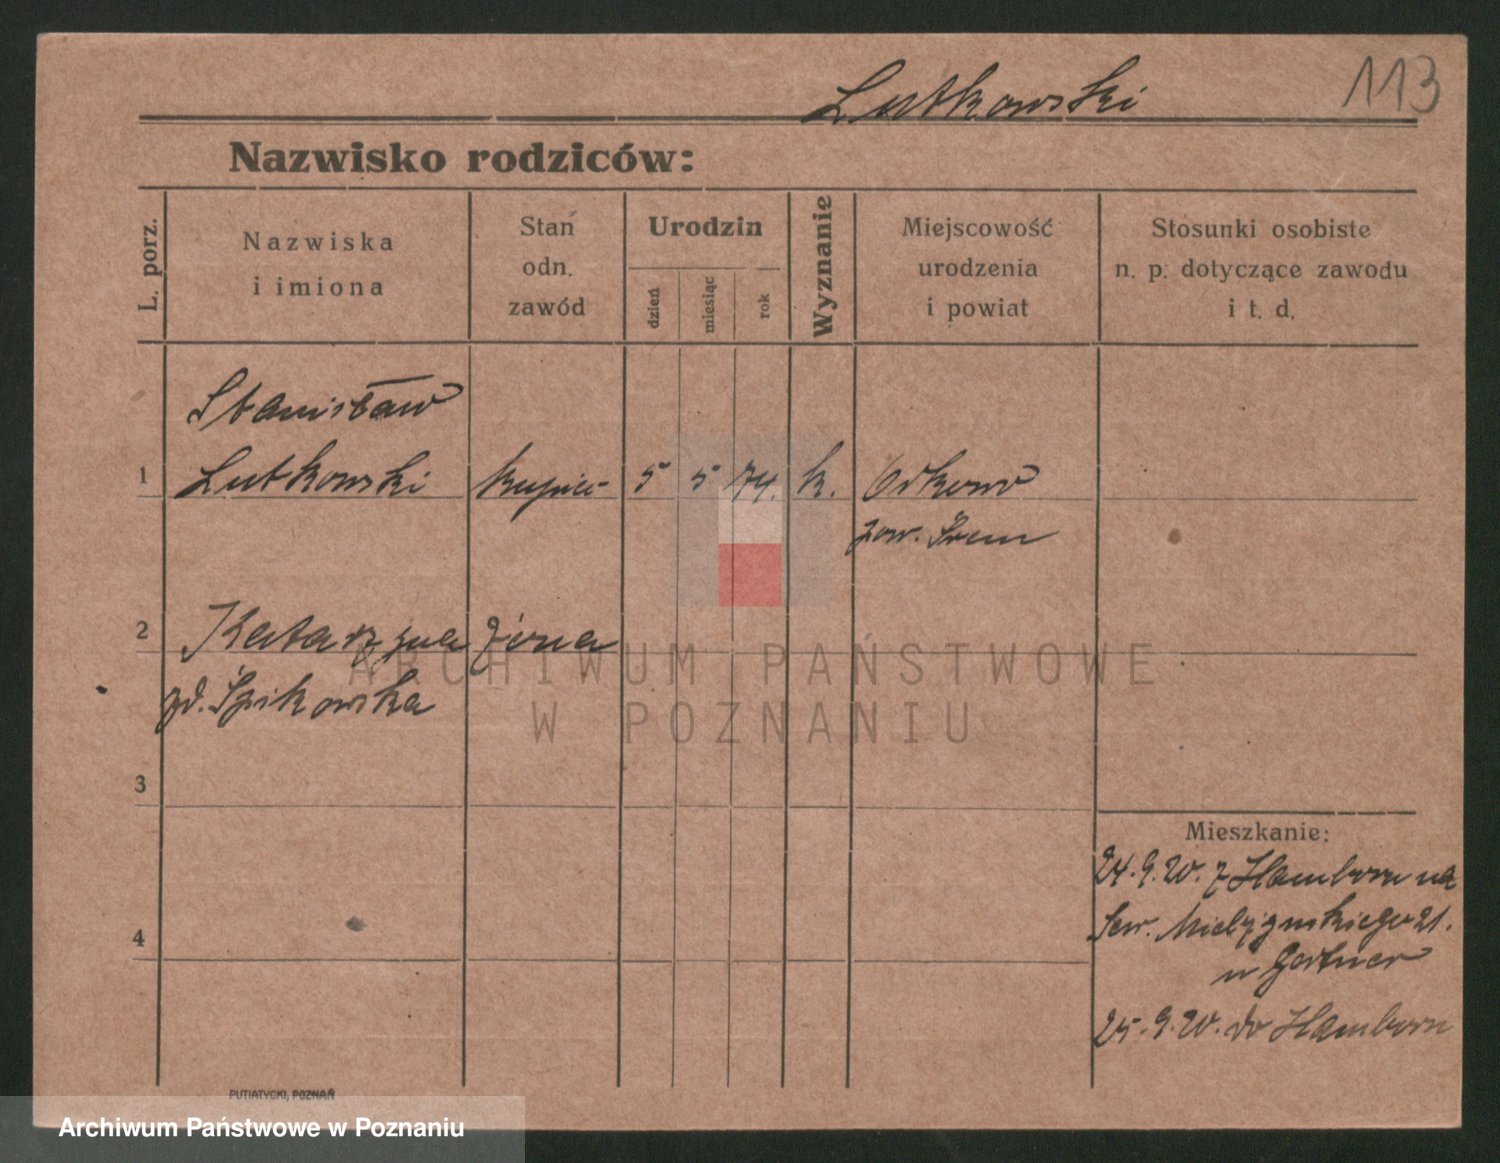 Lutkowski
113
Nazwisko rodziców:
L. porz.
Nazwiska
i imiona
Stan
odn.
zawód
Urodzin
dzień
miesiąc
rok
Wyznanie
Miejscowość
urodzenia
i powiat
Stosunki osobiste
n. p. dotyczące zawodu
i t. d.
Stanisław
1 Lutkowski kupiec 5 5 74. k.
pow. Śrem
2 Katarzyna żona
zd.
3
4
Mieszkanie:
24.9.20. z Hamborn na
Sew. Mielżyńskiego 21.
u Gertner
25.9.20. do Hamborn
PUTIATYCKI, POZNAŃ
ARCHIWUM PAŃSTWOWE
W POZNANIU
Archiwum Państwowe w Poznaniu